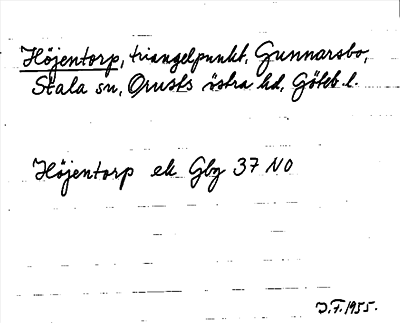 Höjentorp, triangelpunkt, Gunnarsbo,
Stala sn, Orusts östra hd, Göteb. l.
Höjentorp ek Gbg 37 NO
J.F. 1955.